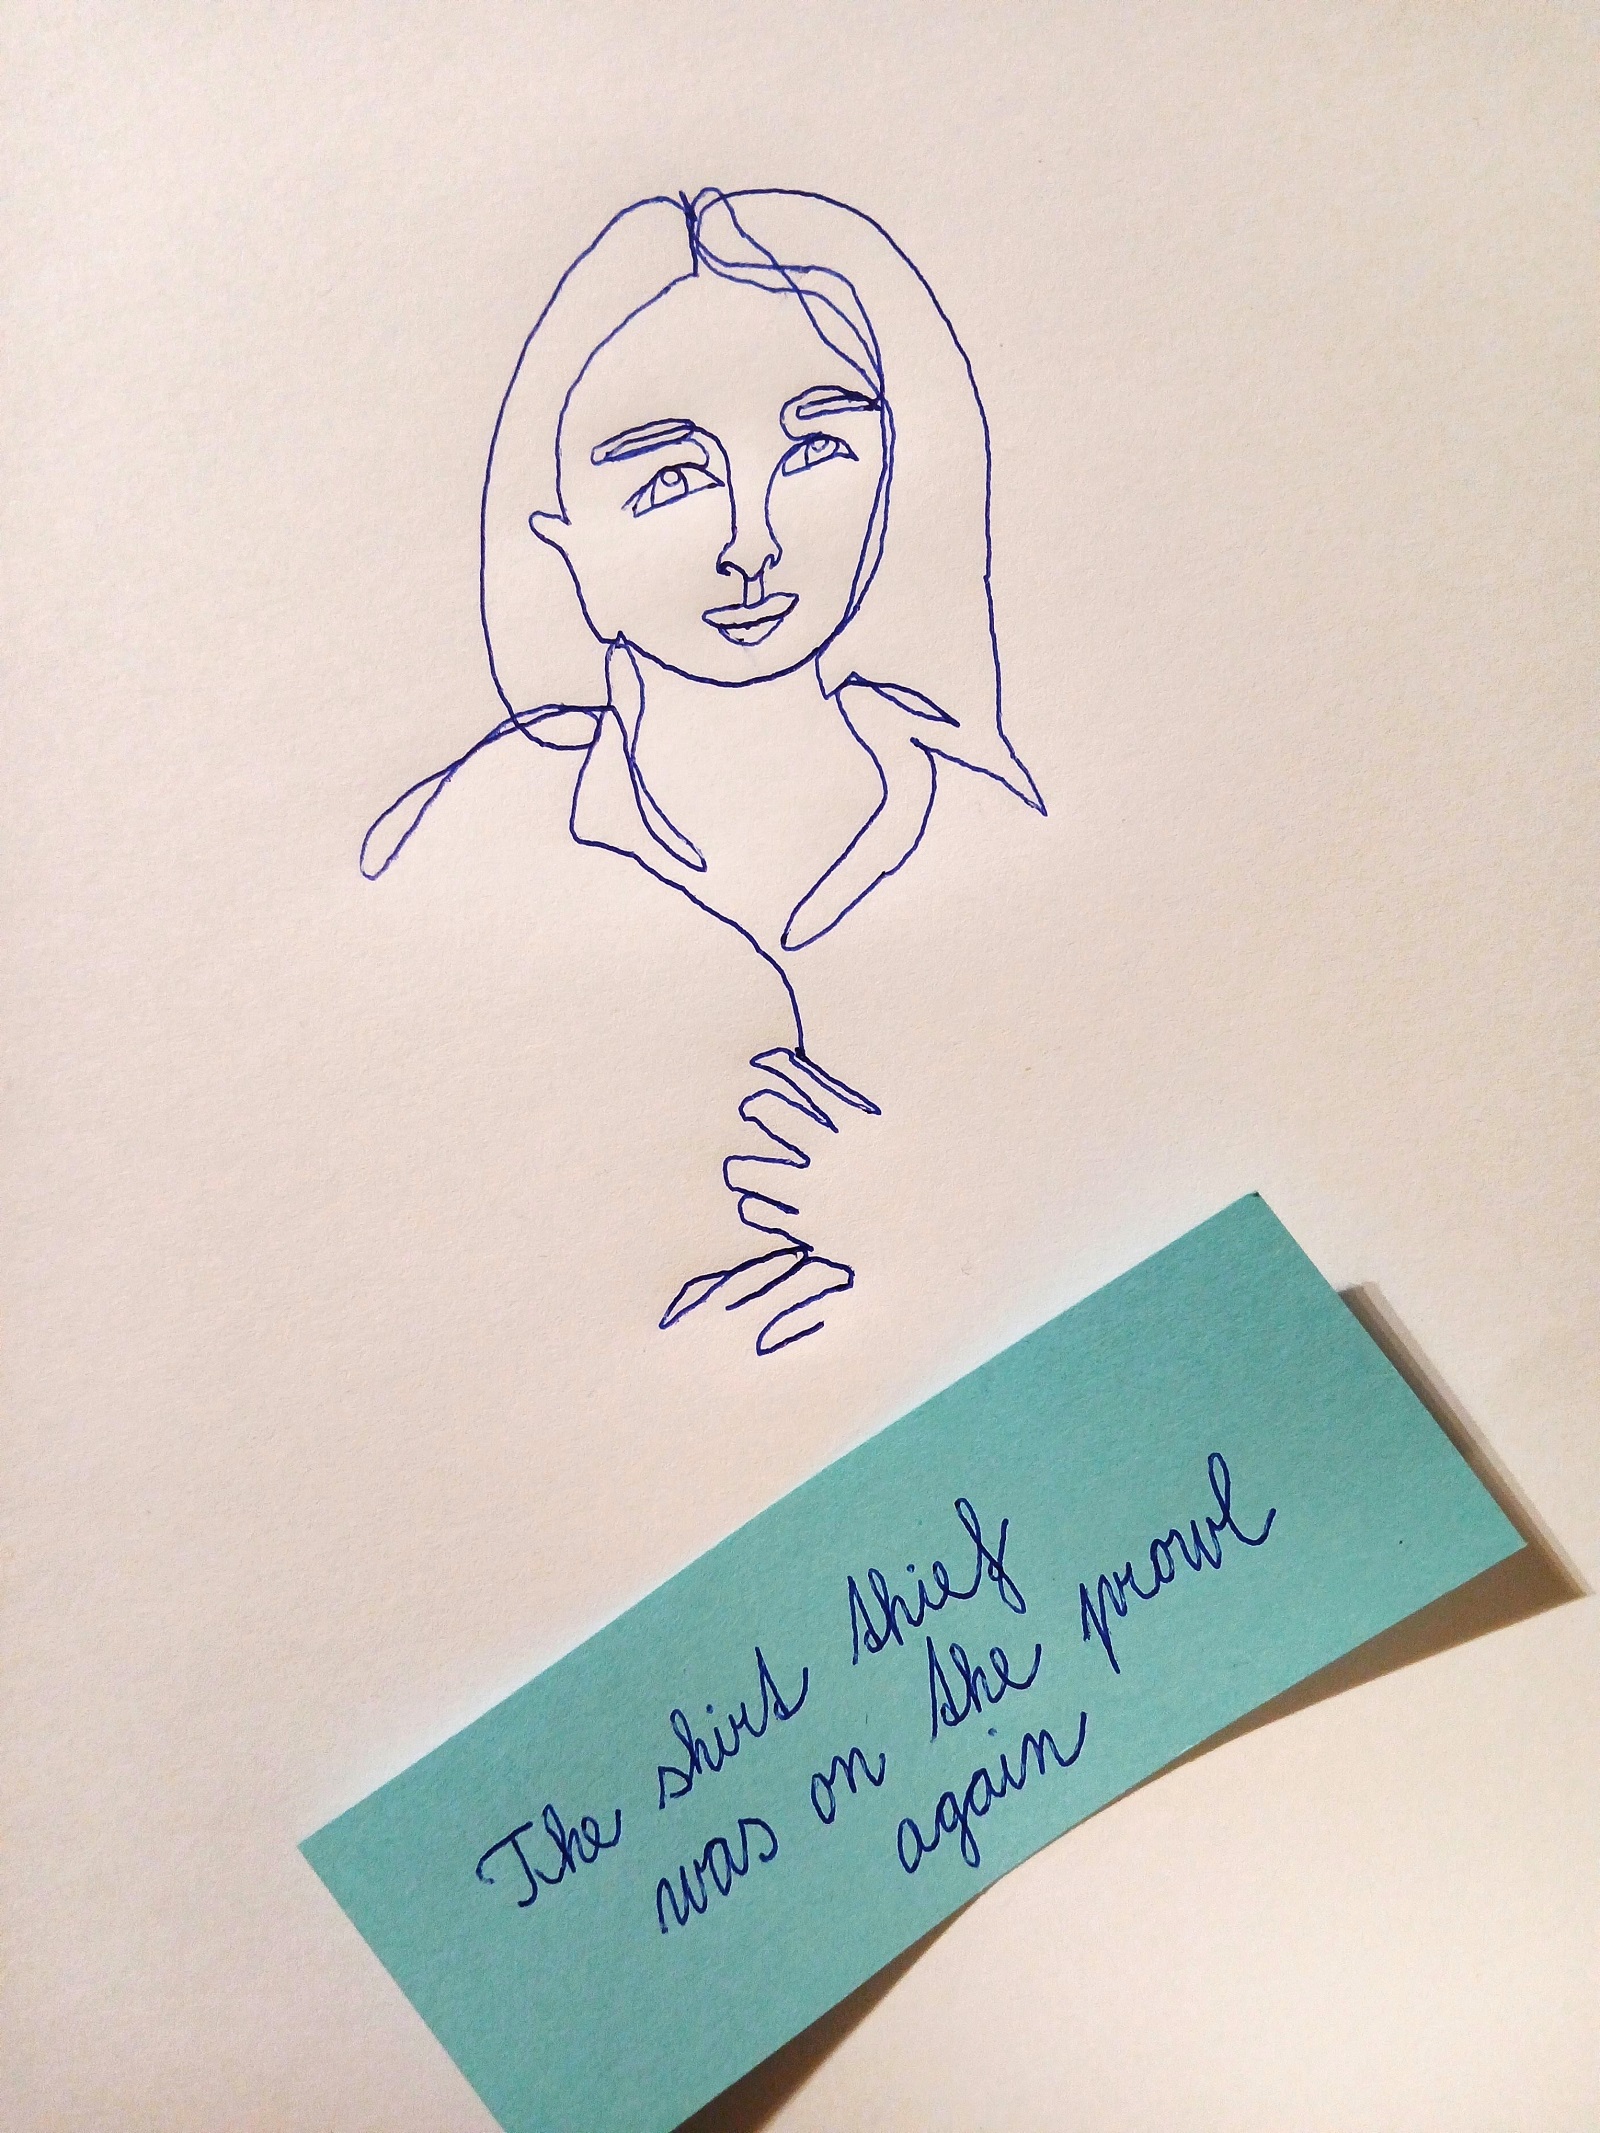 The shirt thief
was on the prowl
again